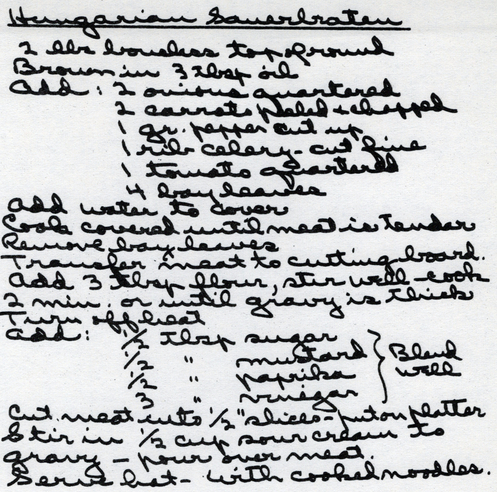 Hungarian Sauerbraten
2 lbs boneless top ground
Brown in 3 tbsp oil
Add: 2 onions quartered
2 carrots peled + chopped
1 gr. pepper cut up
1 rib celery - cut fine
1 tomato quartered
4 bay leaves
Add water to cover
Cook covered until meat is tendar
Remove bay leaves
Transfer meat to cutting board.
Add 3 tbsp flour, stir well - cook
2 min. or until gravy is thick
Turn off heat
Add: 1/2 tbsp sugar
1/2 " mustard } Blend
1/2 " paprika } well
3 " vinegar
Cut meat into 1/2" slices - put on platter
Stir in 1/2 cup sour cream to
gravy - pour over meat.
Serve hot - with cooked noodles.